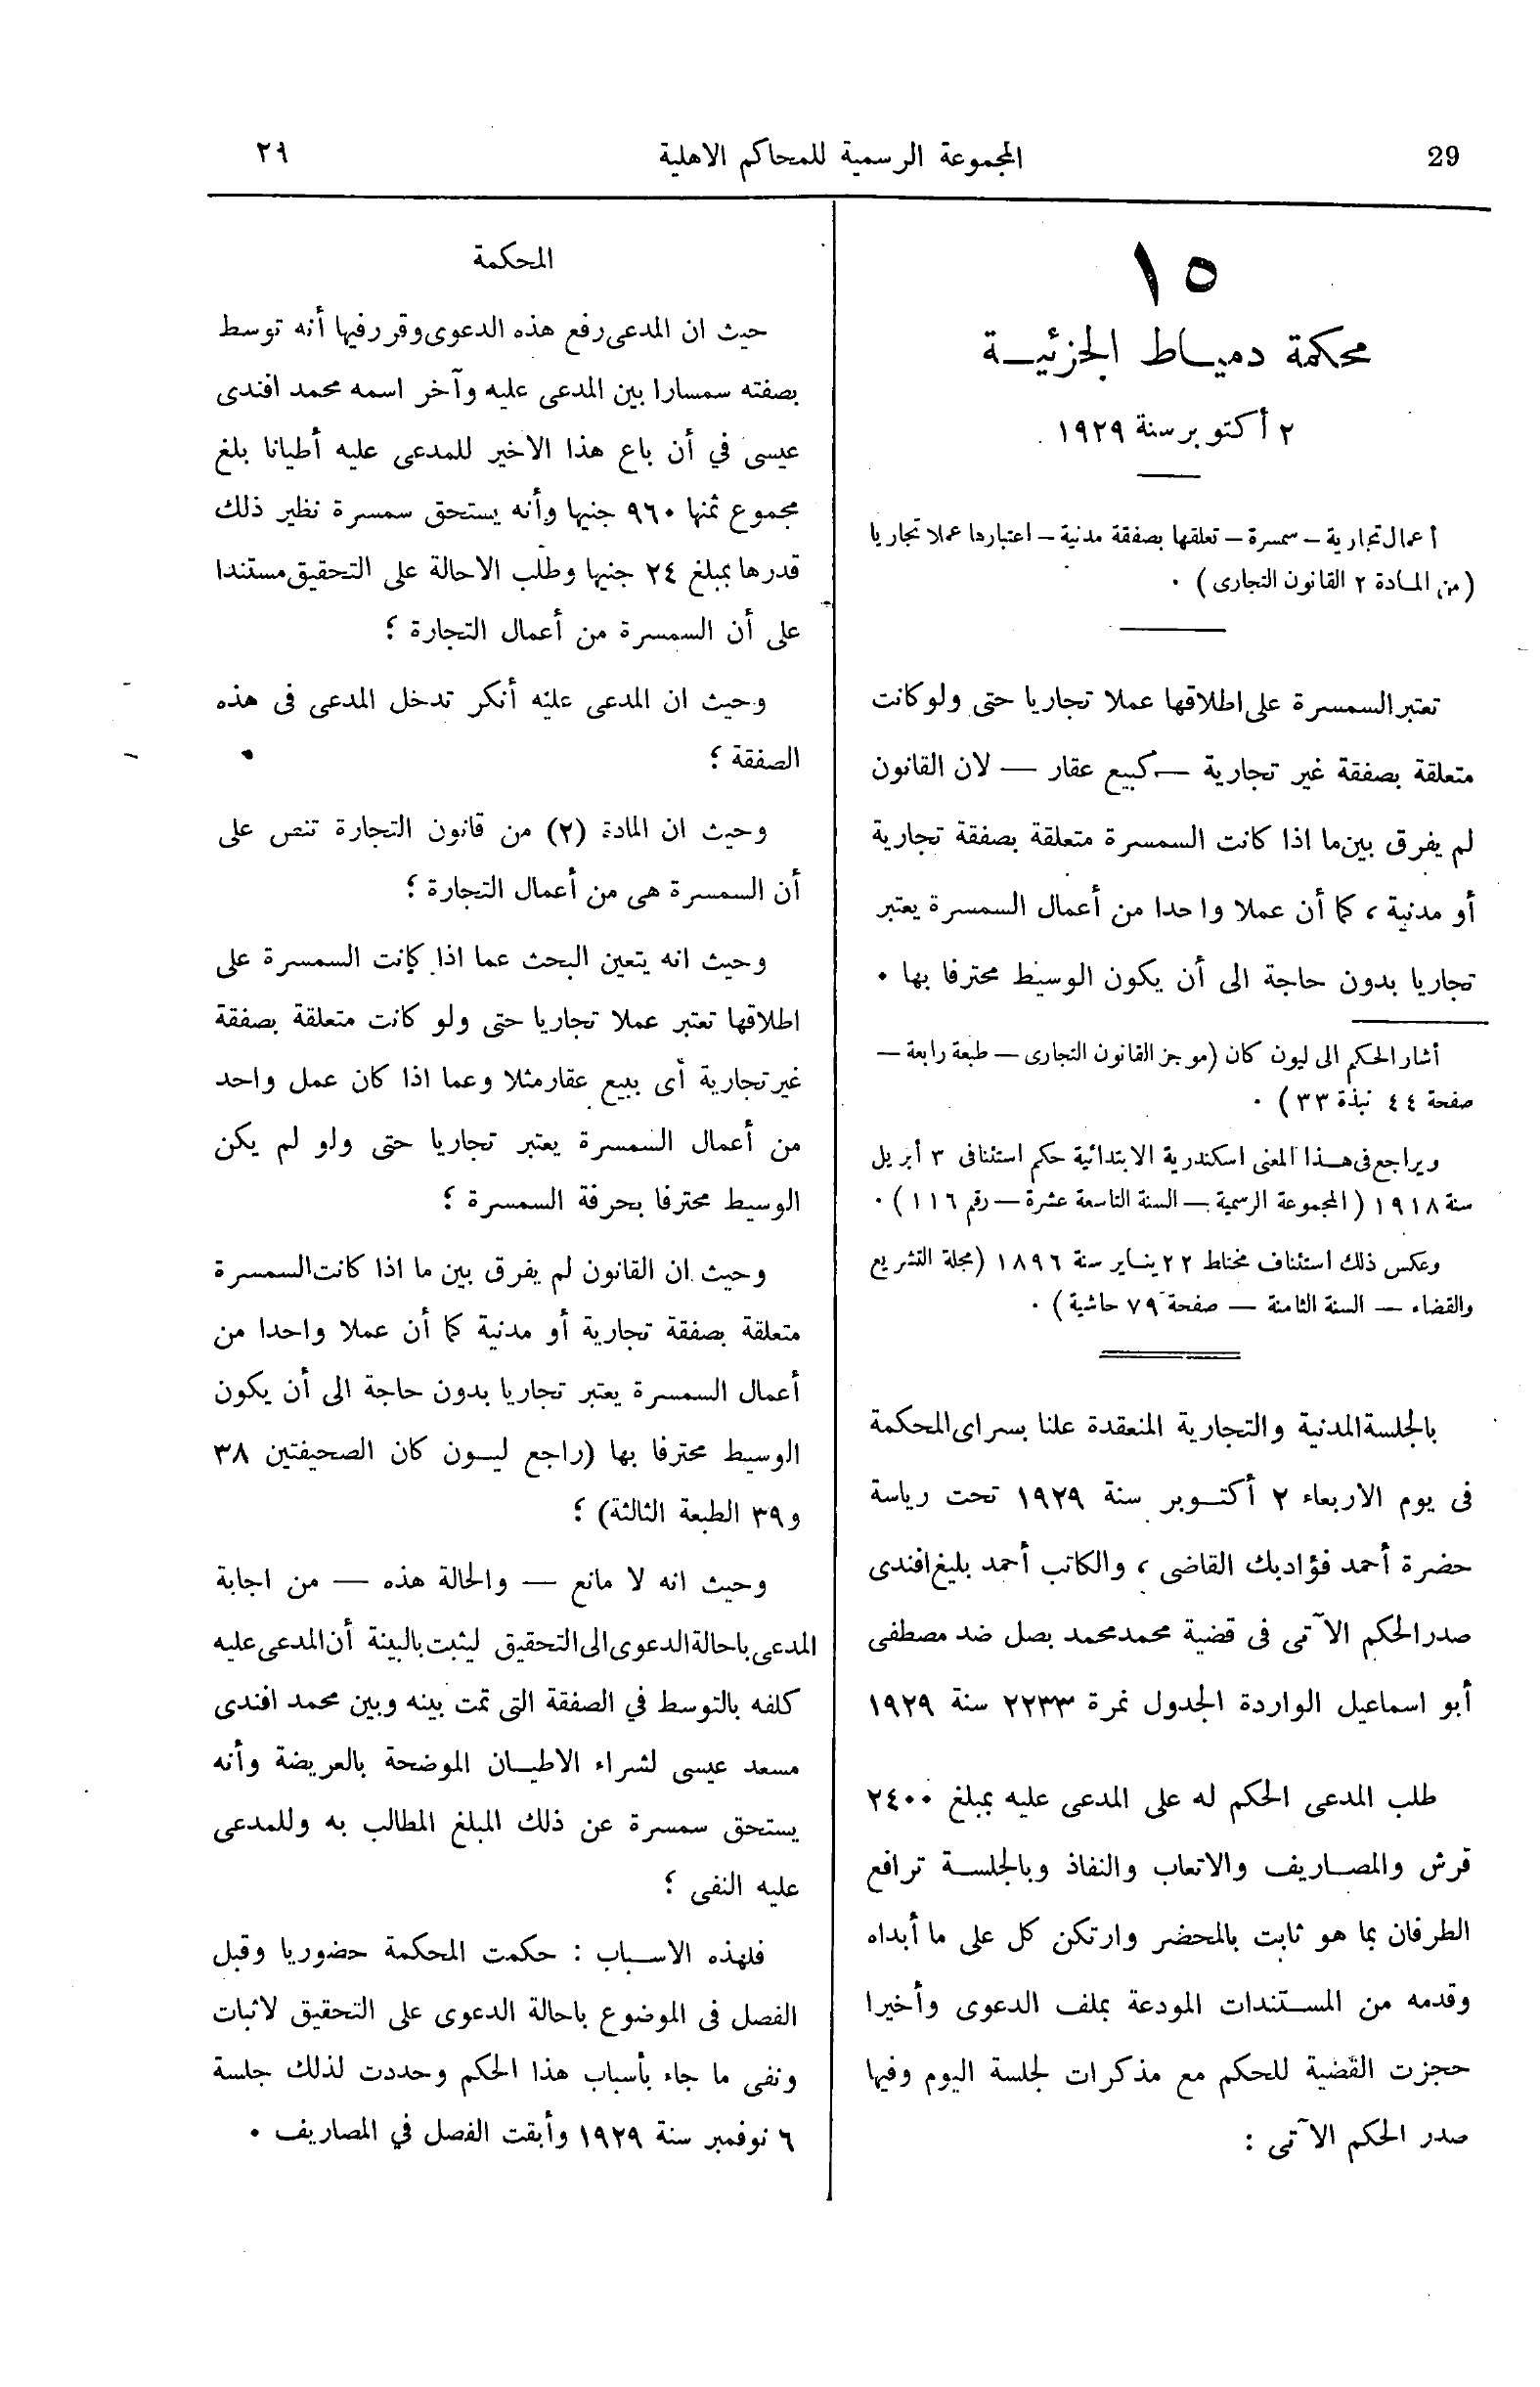 29
المجموعة الرسمية للمحاكم الاهلية
٢٩
١٥
محكمة دميـاط الجزئيـة
٢ أكتوبر سنة ١٩٢٩
أعمال تجارية – سمسرة – تعلقها بصفقة مدنية – اعتبارها عملا تجاريا
(من المادة ٢ القانون التجارى) ٠
تعتبر السمسرة على اطلاقها عملا تجاريا حتى ولو كانت
متعلقة بصفقة غير تجارية — كبيع عقار — لان القانون
لم يفرق بين ما اذا كانت السمسرة متعلقة بصفقة تجارية
أو مدنية ، كما أن عملا واحدا من أعمال السمسرة يعتبر
تجاريا بدون حاجة الى أن يكون الوسيط محترفا بها ٠
أشار الحكم الى ليون كان (موجز القانون التجارى – طبعة رابعة –
صفحة ٤٤ نبذة ٣٣) ٠
ويراجع فى هـذا المعنى اسكندرية الابتدائية حكم استئنافى ٣ أبريل
سنة ١٩١٨ (المجموعة الرسمية – السنة التاسعة عشرة – رقم ١١٦) ٠
وعكس ذلك استئناف مختلط ٢٢ ينـاير سنة ١٨٩٦ (مجلة التشريع
والقضاء – السنة الثامنة – صفحة ٧٩ حاشية) ٠
بالجلسة المدنية والتجارية المنعقدة علنا بسراى المحكمة
فى يوم الاربعاء ٢ أكتـوبر سنة ١٩٢٩ تحت رياسة
حضرة أحمد فؤاد بك القاضى ، والكاتب أحمد بليغ افندى
صدر الحكم الآتى فى قضية محمد محمد بصل ضد مصطفى
أبو اسماعيل الواردة الجدول نمرة ٢٢٣٣ سنة ١٩٢٩
طلب المدعى الحكم له على المدعى عليه بمبلغ ٢٤٠٠
قرش والمصـاريف والاتعاب والنفاذ وبالجلسـة ترافع
الطرفان بما هو ثابت بالمحضر وارتكن كل على ما أبداه
وقدمه من المسـتندات المودعة بملف الدعوى وأخيرا
حجزت القضية للحكم مع مذكرات لجلسة اليوم وفيها
صدر الحكم الآتى :
المحكمة
حيث ان المدعى رفع هذه الدعوى وقرر فيها أنه توسط
بصفته سمسارا بين المدعى عليه وآخر اسمه محمد افندى
عيسى في أن باع هذا الاخير للمدعى عليه أطيانا بلغ
مجموع ثمنها ٩٦٠ جنيها وأنه يستحق سمسرة نظير ذلك
قدرها بمبلغ ٢٤ جنيها وطلب الاحالة على التحقيق مستندا
على أن السمسرة من أعمال التجارة ؛
وحيث ان المدعى عليه أنكر تدخل المدعى فى هذه
الصفقة ؛
وحيث ان المادة (٢) من قانون التجارة تنص على
أن السمسرة هى من أعمال التجارة ؛
وحيث انه يتعين البحث عما اذا كانت السمسرة على
اطلاقها تعتبر عملا تجاريا حتى ولو كانت متعلقة بصفقة
غير تجارية أى ببيع عقار مثلا وعما اذا كان عمل واحد
من أعمال السمسرة يعتبر تجاريا حتى ولو لم يكن
الوسيط محترفا بحرفة السمسرة ؛
وحيث ان القانون لم يفرق بين ما اذا كانت السمسرة
متعلقة بصفقة تجارية أو مدنية كما أن عملا واحدا من
أعمال السمسرة يعتبر تجاريا بدون حاجة الى أن يكون
الوسيط محترفا بها (راجع ليـون كان الصحيفتين ٣٨
و ٣٩ الطبعة الثالثة) ؛
وحيث انه لا مانع — والحالة هذه — من اجابة
المدعى باحالة الدعوى الى التحقيق ليثبت بالبينة أن المدعى عليه
كلفه بالتوسط في الصفقة التى تمت بينه وبين محمد افندى
مسعد عيسى لشراء الاطيـان الموضحة بالعريضة وأنه
يستحق سمسرة عن ذلك المبلغ المطالب به وللمدعى
عليه النفى ؛
فلهذه الاسـباب : حكمت المحكمة حضوريا وقبل
الفصل فى الموضوع باحالة الدعوى على التحقيق لاثبات
ونفى ما جاء بأسباب هذا الحكم وحددت لذلك جلسة
٦ نوفمبر سنة ١٩٢٩ وأبقت الفصل في المصاريف ٠